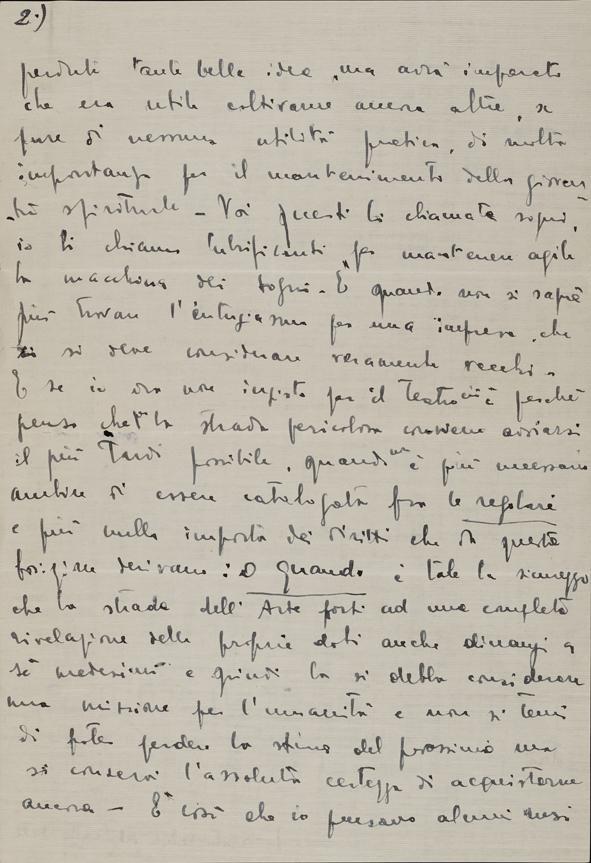 2.)
perduti tante belle idee, ma avrà imparato
che era utile coltivarne ancora altre, se
pure di nessuna utilità pratica, di molta
importanza per il mantenimento della gioven-
tù spirituale – Voi questi li chiamate sogni,
io li chiamo lubrificanti per mantenere agile
la macchina dei sogni – E quando non si saprà
più trovare l'entusiasmo per una impresa, che
si deve considerare veramente vecchi –
E se io ora non insisto per il Teatro è perché
penso che la strada pericolosa conviene
il più tardi possibile, quando è più necessario
ambire di essere catalogata fra le regolari
e più nulla importa dei diritti che da questa
derivano: o quando è tale la sicurezza
che la strada dell'Arte porti ad una completa
rivelazione delle proprie doti anche dinanzi a
sè medesimi e quindi la si debba considerare
una missione per l'umanità e non si tema
di poter perdere la stima del prossimo ma
si conservi l'assoluta certezza di acquistarne
ancora – È così che io pensavo alcuni mesi